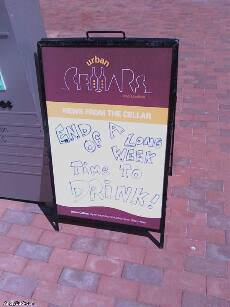 urban
CELLARS
NEWS FROM THE CELLAR
END OF A LONG
WEEK
TIME TO
DRINK!